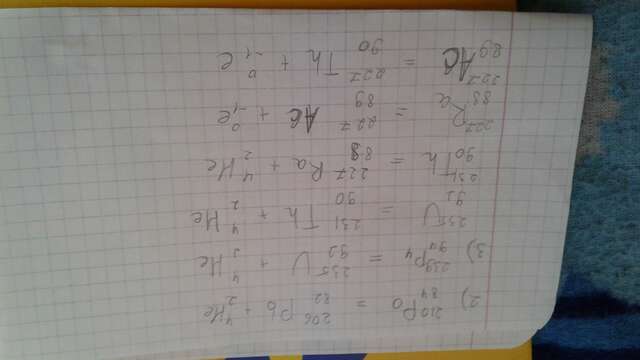 2) ²¹⁰₈₄Po = ²⁰⁶₈₂Pb + ⁴₂He
3) ²³⁹₉₄P₄ = ²³⁵₉₂U + ⁴₂He
²³⁵₉₂U = ²³¹₉₀Th + ⁴₂He
²³¹₉₀Th = ²²⁷₈₈Ra + ⁴₂He
²²⁷₈₈Ra = ²²⁷₈₉Ac + ⁰₋₁e
²²⁷₈₉Ac = ²²⁷₉₀Th + ⁰₋₁e